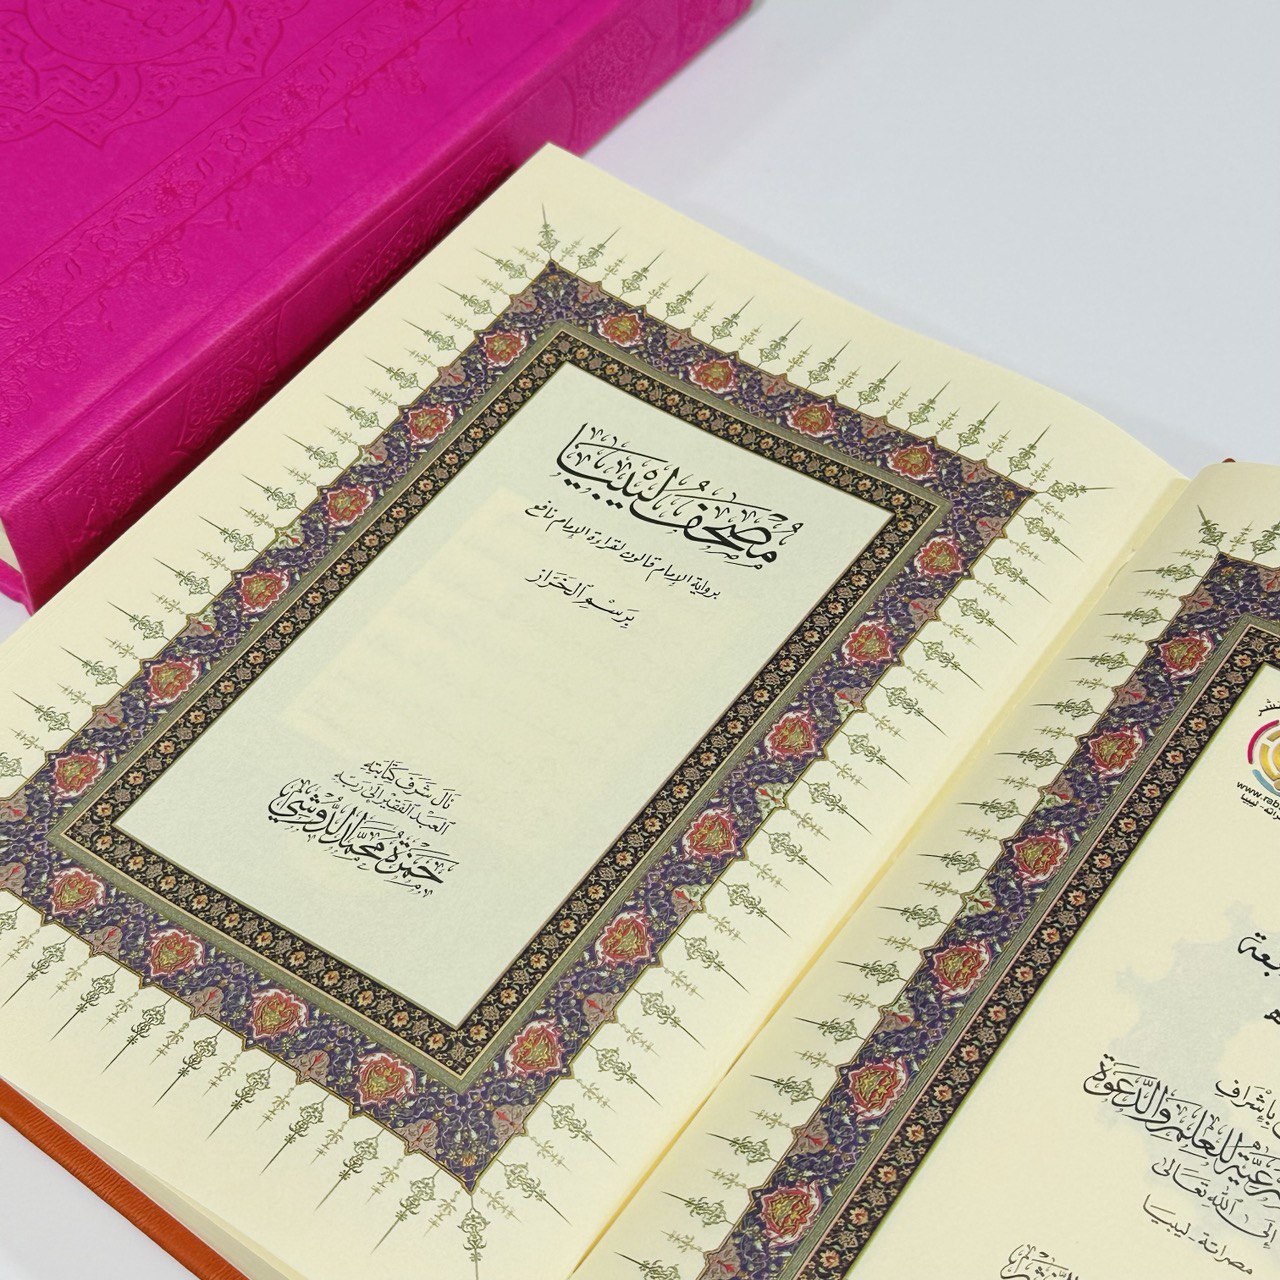 مصحف ليبيا
برواية الإمام قالون لقراءة الإمام نافع
بِرَسْمِ الخَرَّاز
نَالَ شَرَفَ كِتَابَتِهِ
العَبْدُ الفَقِيرُ إلى رَبِّهِ
حَمْزَة مُحَمَّد الدُّوشِي
www.rab
بإشراف
للعِلْمِ والدَّعْوَة
إلى اللهِ تَعَالَى
مصراتة - ليبيا